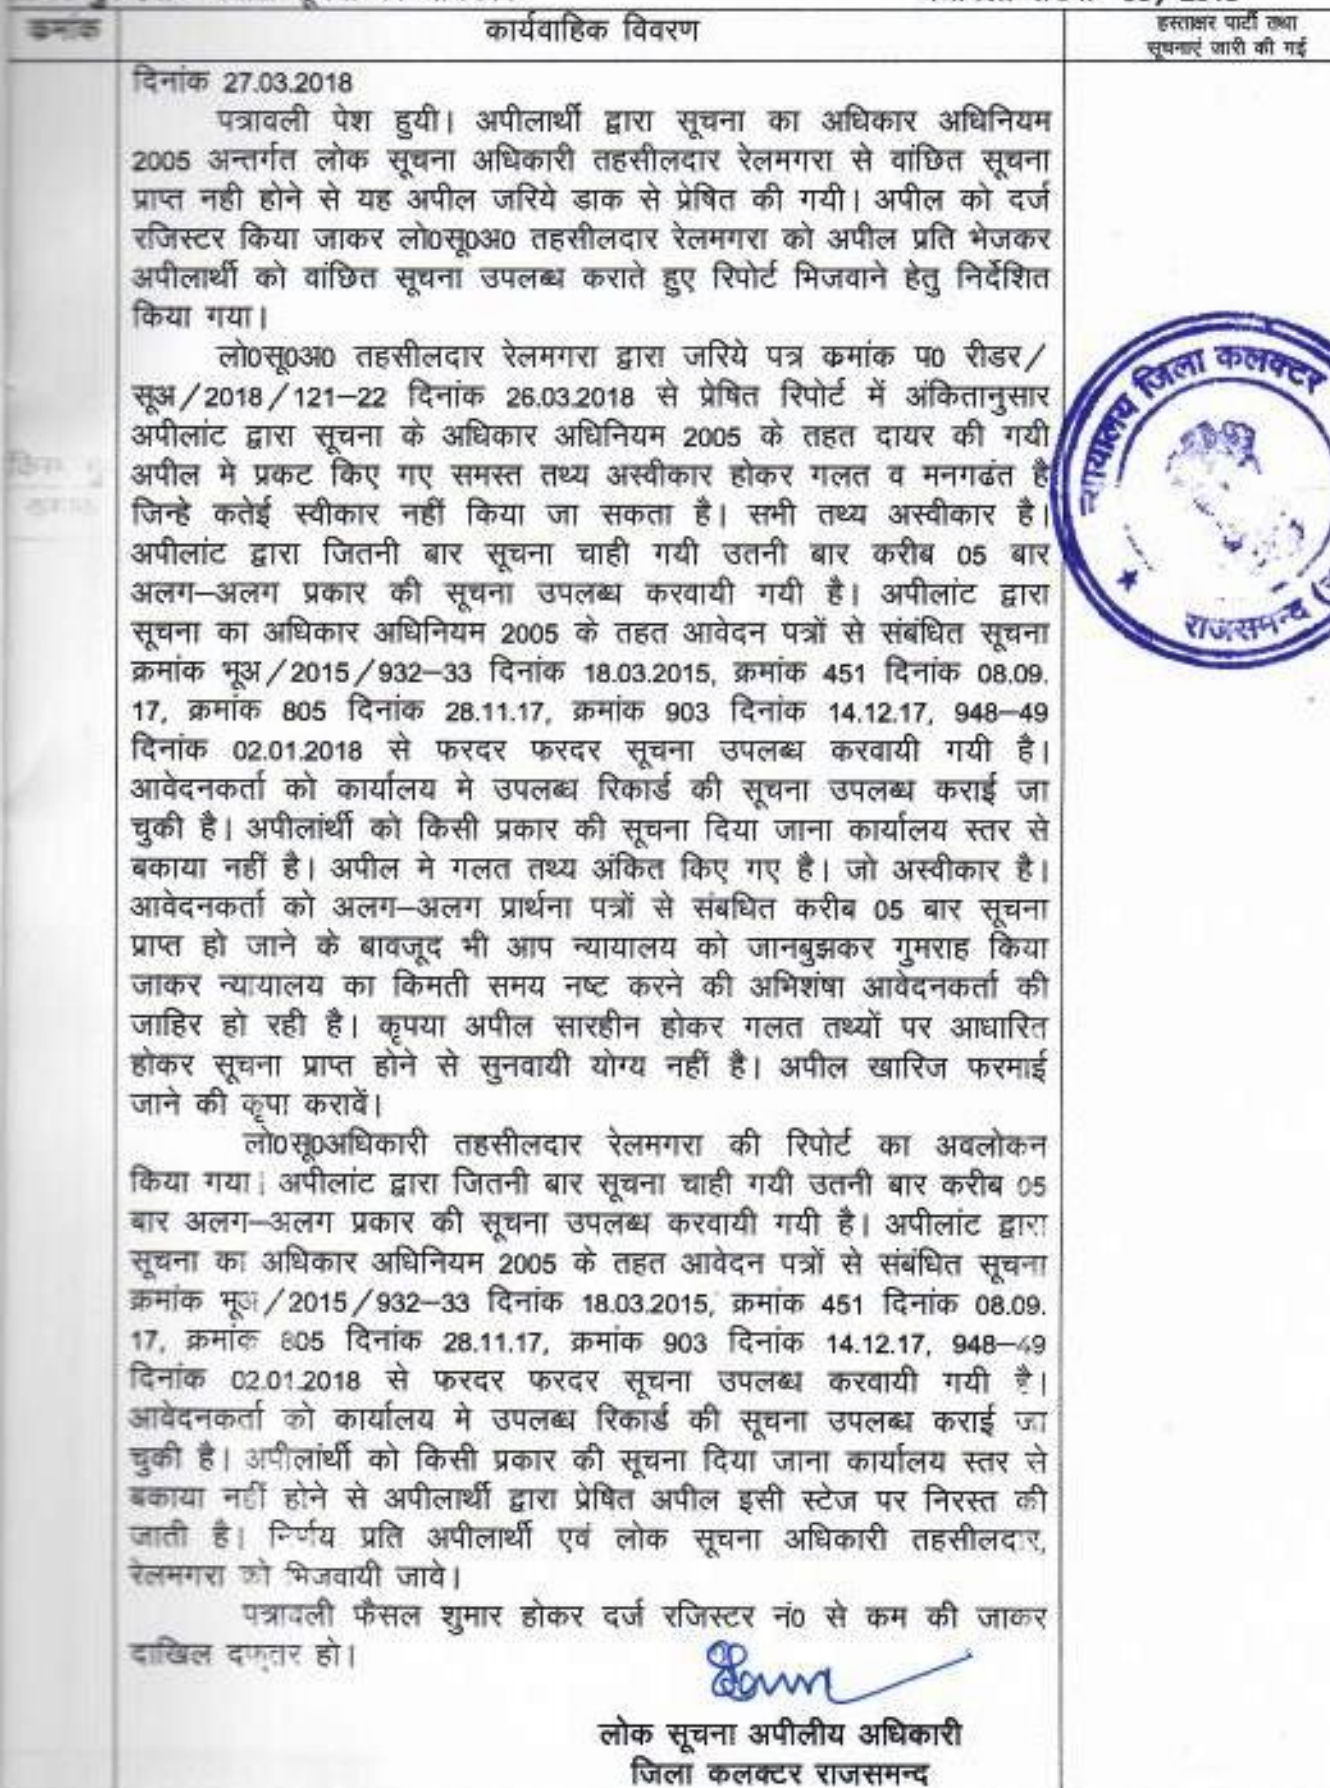 क्रमांक
कार्यवाहिक विवरण
हस्ताक्षर पार्टी तथा
सूचनाएं जारी की गई
दिनांक 27.03.2018
पत्रावली पेश हुयी। अपीलार्थी द्वारा सूचना का अधिकार अधिनियम
2005 अन्तर्गत लोक सूचना अधिकारी तहसीलदार रेलमगरा से वांछित सूचना
प्राप्त नही होने से यह अपील जरिये डाक से प्रेषित की गयी। अपील को दर्ज
रजिस्टर किया जाकर लो0सू0अ0 तहसीलदार रेलमगरा को अपील प्रति भेजकर
अपीलार्थी को वांछित सूचना उपलब्ध कराते हुए रिपोर्ट भिजवाने हेतु निर्देशित
किया गया।
लो0सू0अ0 तहसीलदार रेलमगरा द्वारा जरिये पत्र क्रमांक प0 रीडर/
सूअ/2018/121–22 दिनांक 26.03.2018 से प्रेषित रिपोर्ट में अंकितानुसार
अपीलांट द्वारा सूचना के अधिकार अधिनियम 2005 के तहत दायर की गयी
अपील मे प्रकट किए गए समस्त तथ्य अस्वीकार होकर गलत व मनगढंत है
जिन्हे कतेई स्वीकार नहीं किया जा सकता है। सभी तथ्य अस्वीकार है।
अपीलांट द्वारा जितनी बार सूचना चाही गयी उतनी बार करीब 05 बार
अलग–अलग प्रकार की सूचना उपलब्ध करवायी गयी है। अपीलांट द्वारा
सूचना का अधिकार अधिनियम 2005 के तहत आवेदन पत्रों से संबंधित सूचना
क्रमांक भूअ/2015/932–33 दिनांक 18.03.2015, क्रमांक 451 दिनांक 08.09.
17, क्रमांक 805 दिनांक 28.11.17, क्रमांक 903 दिनांक 14.12.17, 948–49
दिनांक 02.01.2018 से फरदर फरदर सूचना उपलब्ध करवायी गयी है।
आवेदनकर्ता को कार्यालय मे उपलब्ध रिकार्ड की सूचना उपलब्ध कराई जा
चुकी है। अपीलांर्थी को किसी प्रकार की सूचना दिया जाना कार्यालय स्तर से
बकाया नहीं है। अपील मे गलत तथ्य अंकित किए गए है। जो अस्वीकार है।
आवेदनकर्ता को अलग–अलग प्रार्थना पत्रों से संबधित करीब 05 बार सूचना
प्राप्त हो जाने के बावजूद भी आप न्यायालय को जानबुझकर गुमराह किया
जाकर न्यायालय का किमती समय नष्ट करने की अभिशंषा आवेदनकर्ता की
जाहिर हो रही है। कृपया अपील सारहीन होकर गलत तथ्यों पर आधारित
होकर सूचना प्राप्त होने से सुनवायी योग्य नहीं है। अपील खारिज फरमाई
जाने की कृपा करावें।
लो0सू0अधिकारी तहसीलदार रेलमगरा की रिपोर्ट का अवलोकन
किया गया। अपीलांट द्वारा जितनी बार सूचना चाही गयी उतनी बार करीब 05
बार अलग–अलग प्रकार की सूचना उपलब्ध करवायी गयी है। अपीलांट द्वारा
सूचना का अधिकार अधिनियम 2005 के तहत आवेदन पत्रों से संबंधित सूचना
क्रमांक भूअ/2015/932–33 दिनांक 18.03.2015, क्रमांक 451 दिनांक 08.09.
17, क्रमांक 805 दिनांक 28.11.17, क्रमांक 903 दिनांक 14.12.17, 948–49
दिनांक 02.01.2018 से फरदर फरदर सूचना उपलब्ध करवायी गयी है।
आवेदनकर्ता को कार्यालय मे उपलब्ध रिकार्ड की सूचना उपलब्ध कराई जा
चुकी है। अपीलांर्थी को किसी प्रकार की सूचना दिया जाना कार्यालय स्तर से
बकाया नहीं होने से अपीलार्थी द्वारा प्रेषित अपील इसी स्टेज पर निरस्त की
जाती है। निर्णय प्रति अपीलार्थी एवं लोक सूचना अधिकारी तहसीलदार,
रेलमगरा को भिजवायी जावे।
पत्रावली फैसल शुमार होकर दर्ज रजिस्टर नं0 से कम की जाकर
दाखिल दफ्तर हो।
लोक सूचना अपीलीय अधिकारी
जिला कलक्टर राजसमन्द
न्यायालय जिला कलक्टर
राजसमन्द